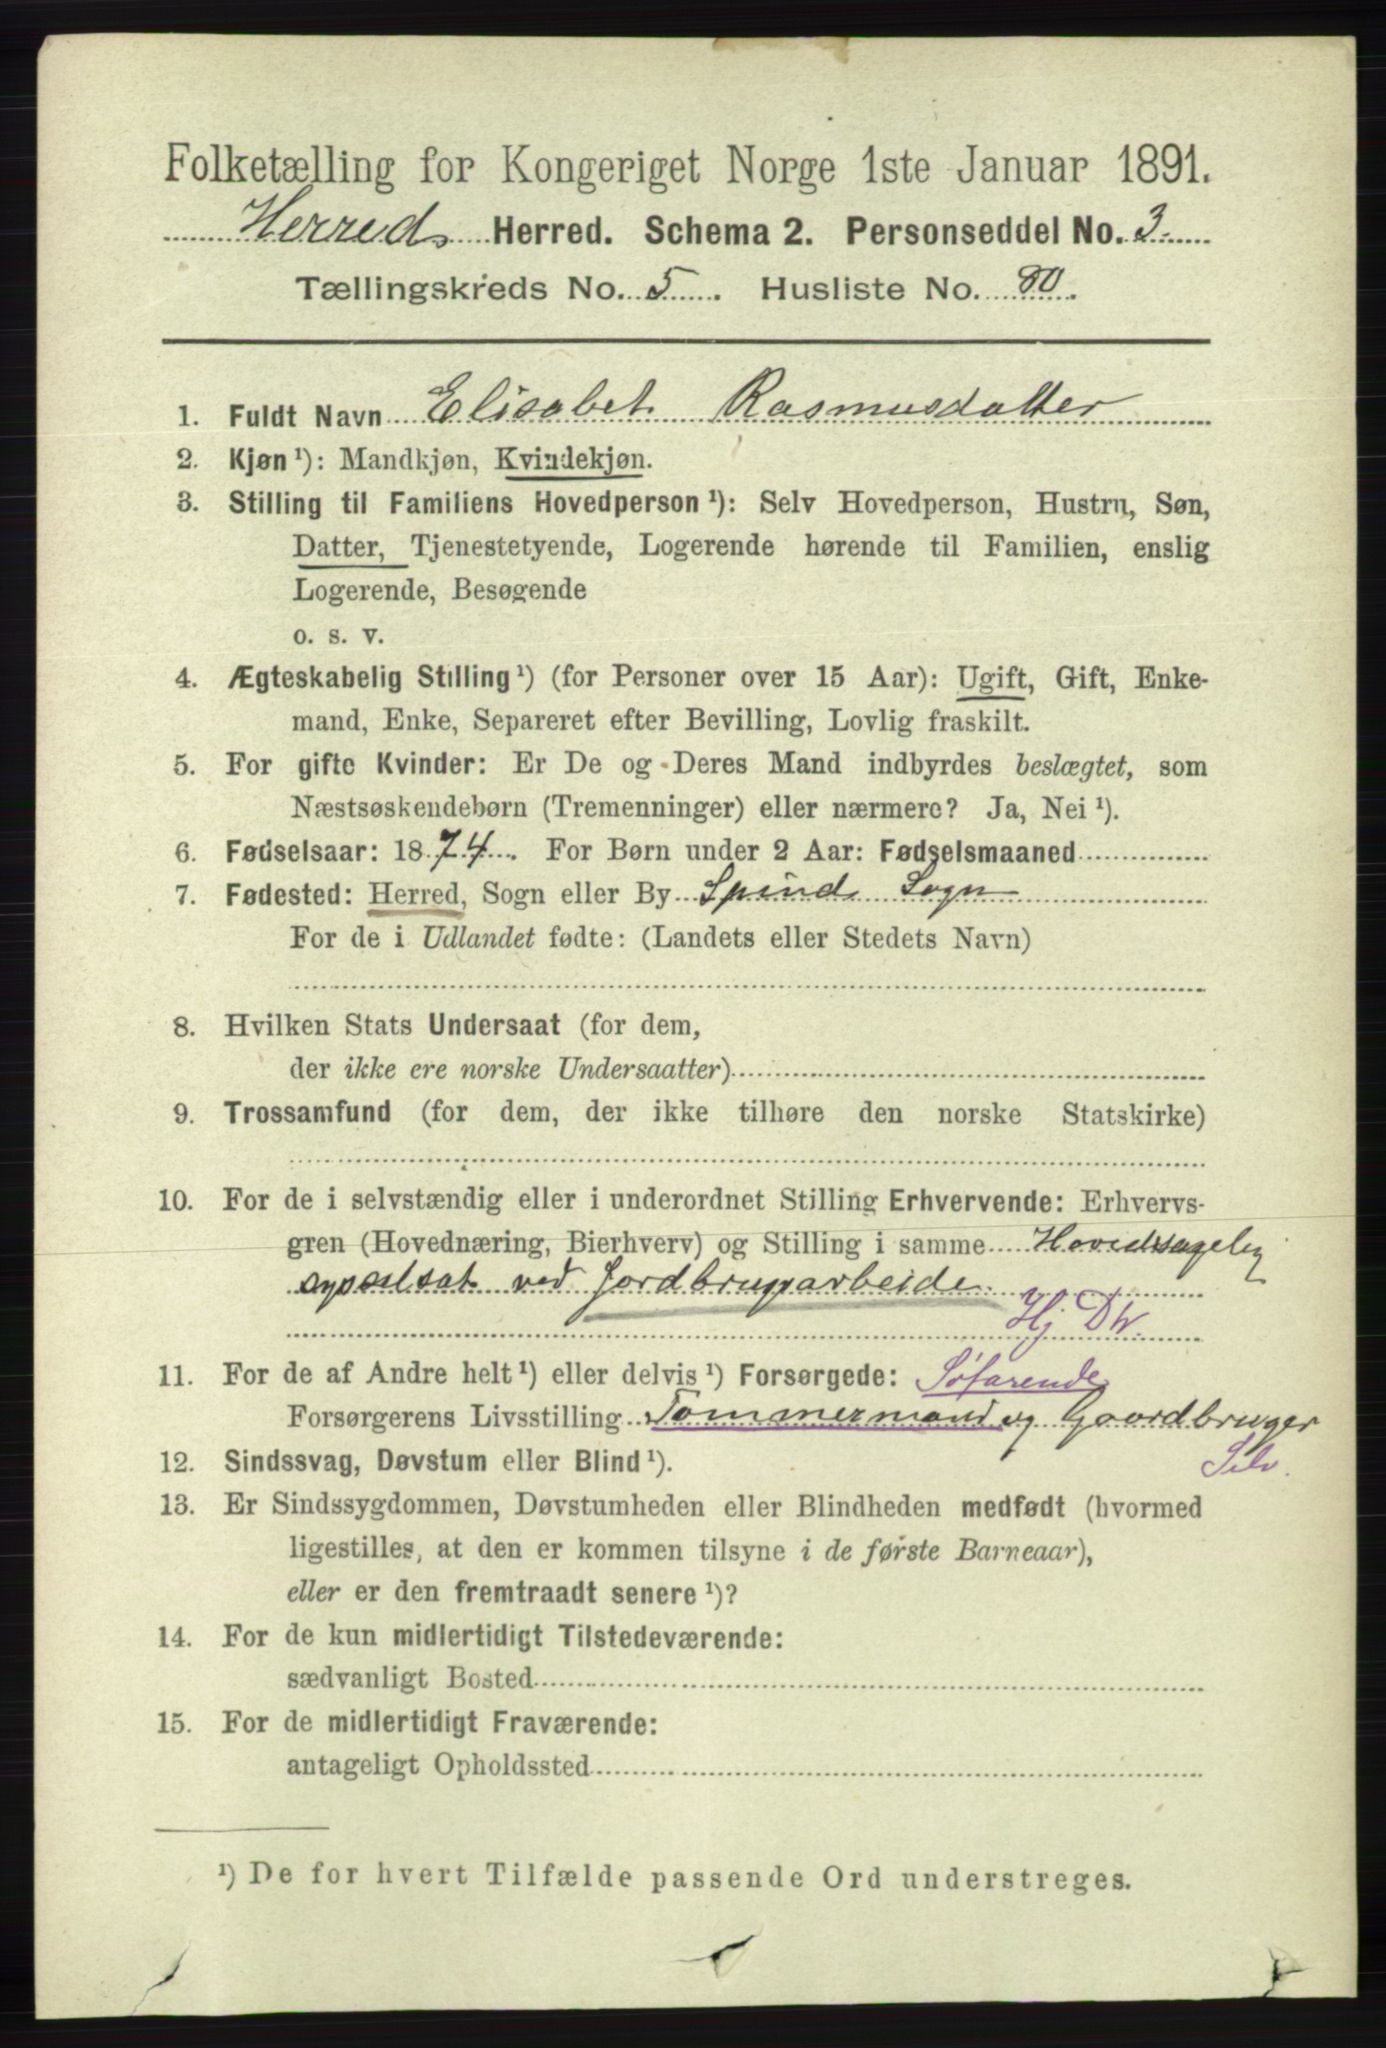 Folketælling for Kongeriget Norge 1ste Januar 1891.
Herreds Herred. Schema 2. Personseddel No. 3.
Tællingskreds No. 5. Husliste No. 80.
1. Fuldt Navn Elisabet Rasmusdatter
2. Kjøn ¹): Mandkjøn, Kvindekjøn.
3. Stilling til Familiens Hovedperson ¹): Selv Hovedperson, Hustru, Søn,
Datter, Tjenestetyende, Logerende hørende til Familien, enslig
Logerende, Besøgende
o. s. v.
4. Ægteskabelig Stilling ¹) (for Personer over 15 Aar): Ugift, Gift, Enke-
mand, Enke, Separeret efter Bevilling, Lovlig fraskilt.
5. For gifte Kvinder: Er De og Deres Mand indbyrdes beslægtet, som
Næstsøskendebørn (Tremenninger) eller nærmere? Ja, Nei ¹).
6. Fødselsaar: 1874. For Børn under 2 Aar: Fødselsmaaned
7. Fødested: Herred, Sogn eller By Spind Sogn
For de i Udlandet fødte: (Landets eller Stedets Navn)
8. Hvilken Stats Undersaat (for dem,
der ikke ere norske Undersaatter)
9. Trossamfund (for dem, der ikke tilhøre den norske Statskirke)
10. For de i selvstændig eller i underordnet Stilling Erhvervende: Erhvervs-
gren (Hovednæring, Bierhverv) og Stilling i samme Hovedsagelig
sysselsat ved Jordbrugsarbeide
Hj Dtr.
11. For de af Andre helt ¹) eller delvis ¹) Forsørgede: Søfarende
Forsørgerens Livsstilling Tømmermand og Gaardbruger
Selv.
12. Sindssvag, Døvstum eller Blind ¹).
13. Er Sindssygdommen, Døvstumheden eller Blindheden medfødt (hvormed
ligestilles, at den er kommen tilsyne i de første Barneaar),
eller er den fremtraadt senere ¹)?
14. For de kun midlertidigt Tilstedeværende:
sædvanligt Bosted
15. For de midlertidigt Fraværende:
antageligt Opholdssted
¹) De for hvert Tilfælde passende Ord understreges.